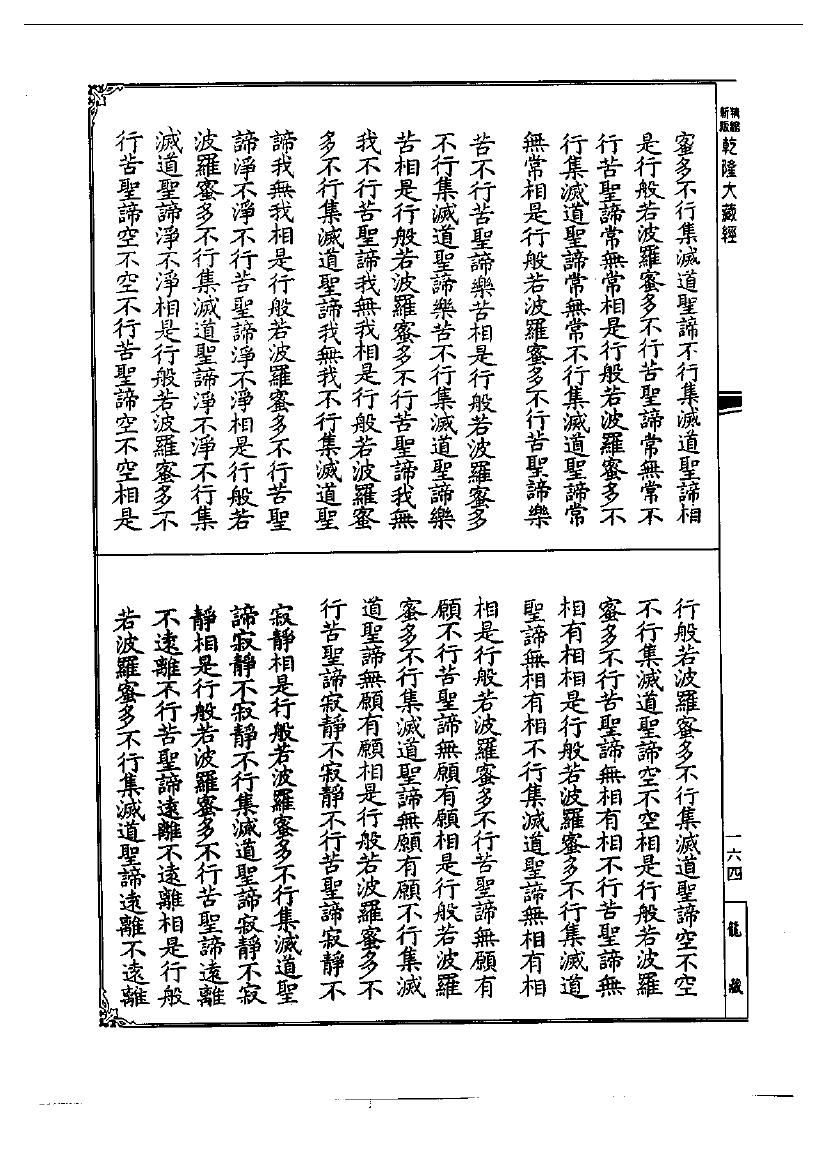 精縮
新版
乾隆大藏經
蜜多不行集滅道聖諦不行集滅道聖諦相
是行般若波羅蜜多不行苦聖諦常無常不
行苦聖諦常無常相是行般若波羅蜜多不
行集滅道聖諦常無常不行集滅道聖諦常
無常相是行般若波羅蜜多不行苦聖諦樂
苦不行苦聖諦樂苦相是行般若波羅蜜多
不行集滅道聖諦樂苦不行集滅道聖諦樂
苦相是行般若波羅蜜多不行苦聖諦我無
我不行苦聖諦我無我相是行般若波羅蜜
多不行集滅道聖諦我無我不行集滅道聖
諦我無我相是行般若波羅蜜多不行苦聖
諦淨不淨不行苦聖諦淨不淨相是行般若
波羅蜜多不行集滅道聖諦淨不淨不行集
滅道聖諦淨不淨相是行般若波羅蜜多不
行苦聖諦空不空不行苦聖諦空不空相是
行般若波羅蜜多不行集滅道聖諦空不空
不行集滅道聖諦空不空相是行般若波羅
蜜多不行苦聖諦無相有相不行苦聖諦無
相有相相是行般若波羅蜜多不行集滅道
聖諦無相有相不行集滅道聖諦無相有相
相是行般若波羅蜜多不行苦聖諦無願有
願不行苦聖諦無願有願相是行般若波羅
蜜多不行集滅道聖諦無願有願不行集滅
道聖諦無願有願相是行般若波羅蜜多不
行苦聖諦寂靜不寂靜不行苦聖諦寂靜不
寂靜相是行般若波羅蜜多不行集滅道聖
諦寂靜不寂靜不行集滅道聖諦寂靜不寂
靜相是行般若波羅蜜多不行苦聖諦遠離
不遠離不行苦聖諦遠離不遠離相是行般
若波羅蜜多不行集滅道聖諦遠離不遠離
一六四
龍藏